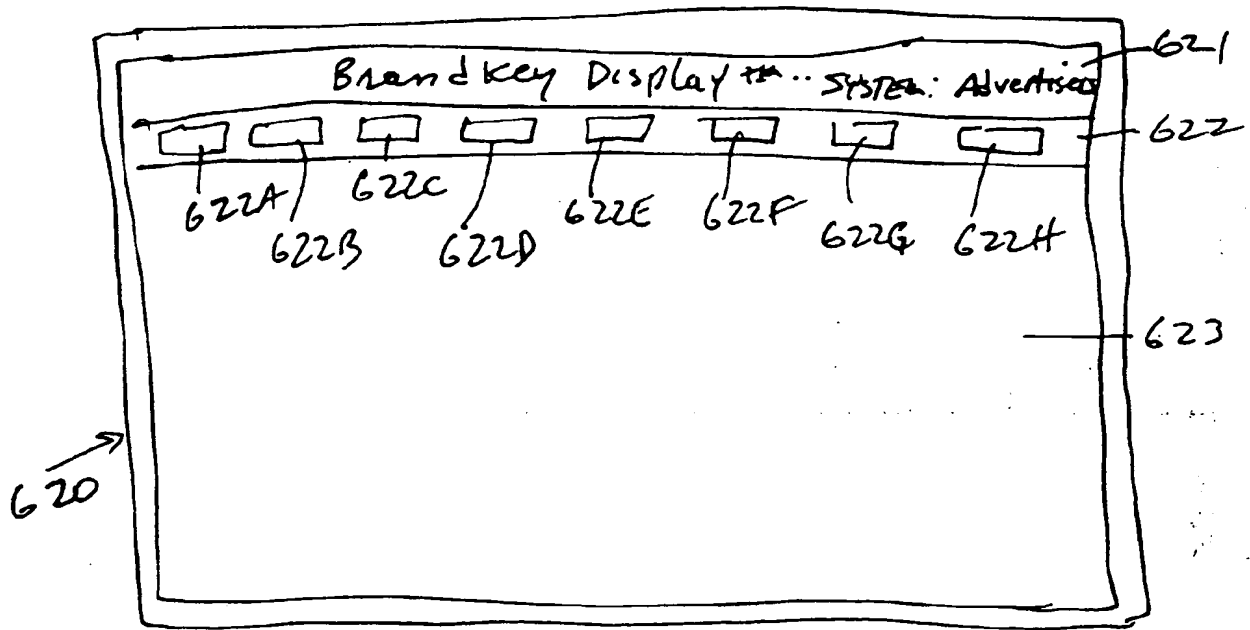 Brand Key Display ... System: Advertiser
621
622
622A 622B 622C 622D 622E 622F 622G 622H
623
620